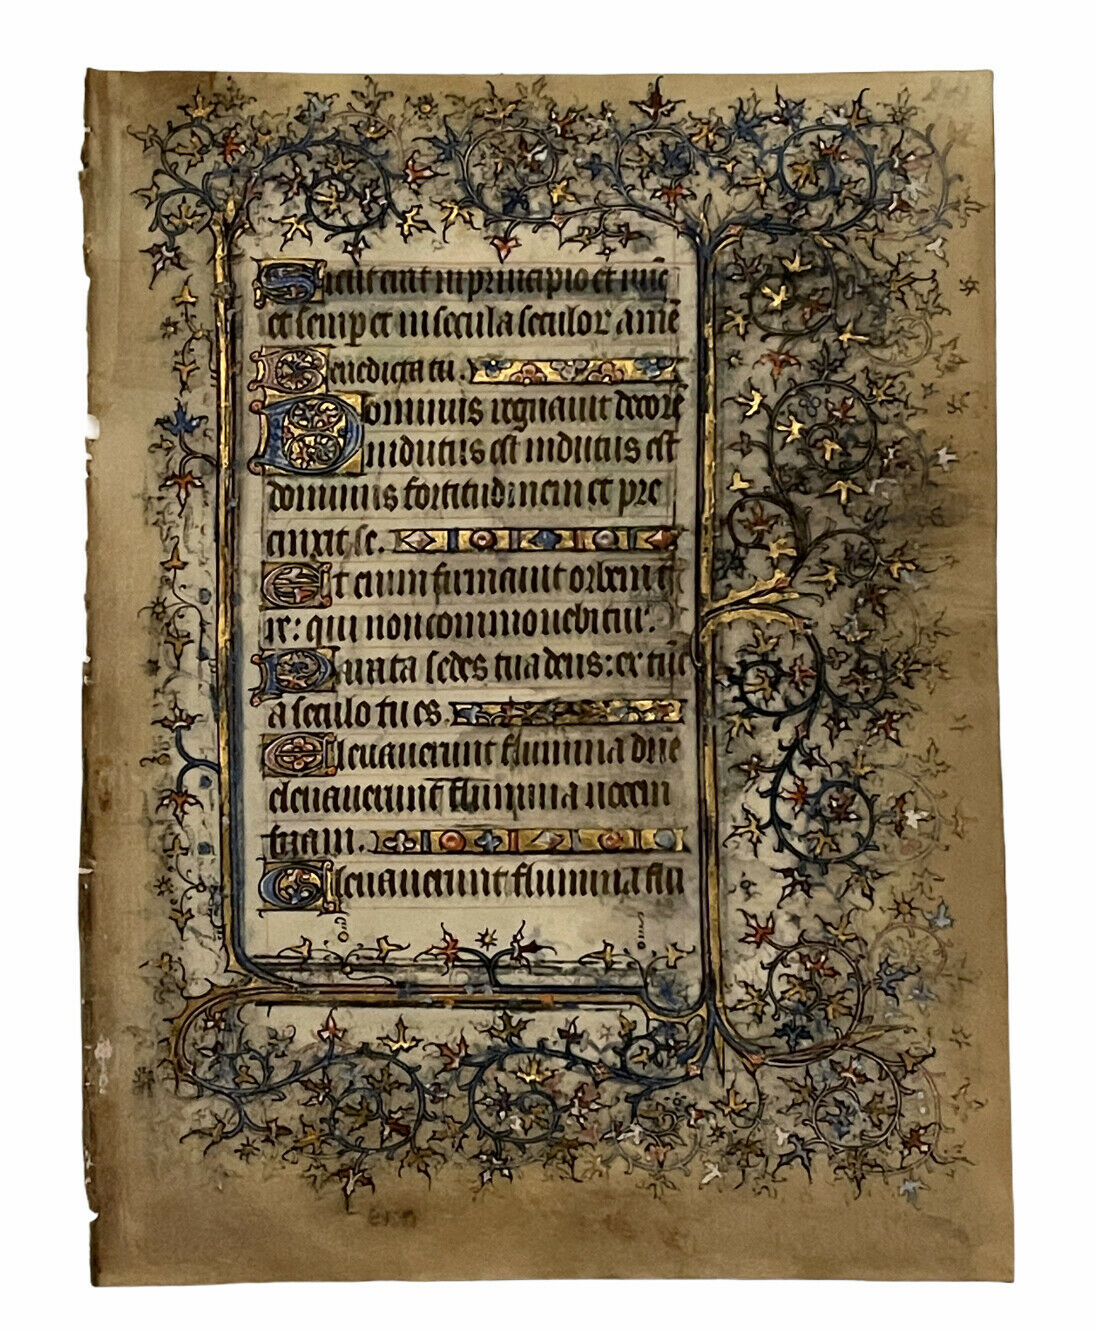 Sicut erat in principio et nūc
et semper et in secula seculor amē
Benedicta tu.
Dominus regnauit decorē
indutus est indutus est
dominus fortitudinem et pre
cinxit se.
Et enim firmauit orbem t̄
re: qui non commouebitur.
Parata sedes tua deus: ex tūc
a seculo tu es.
Eleuauerunt flumina dn̄e
eleuauerunt flumina uocem
suam.
Eleuauerunt flumina flu